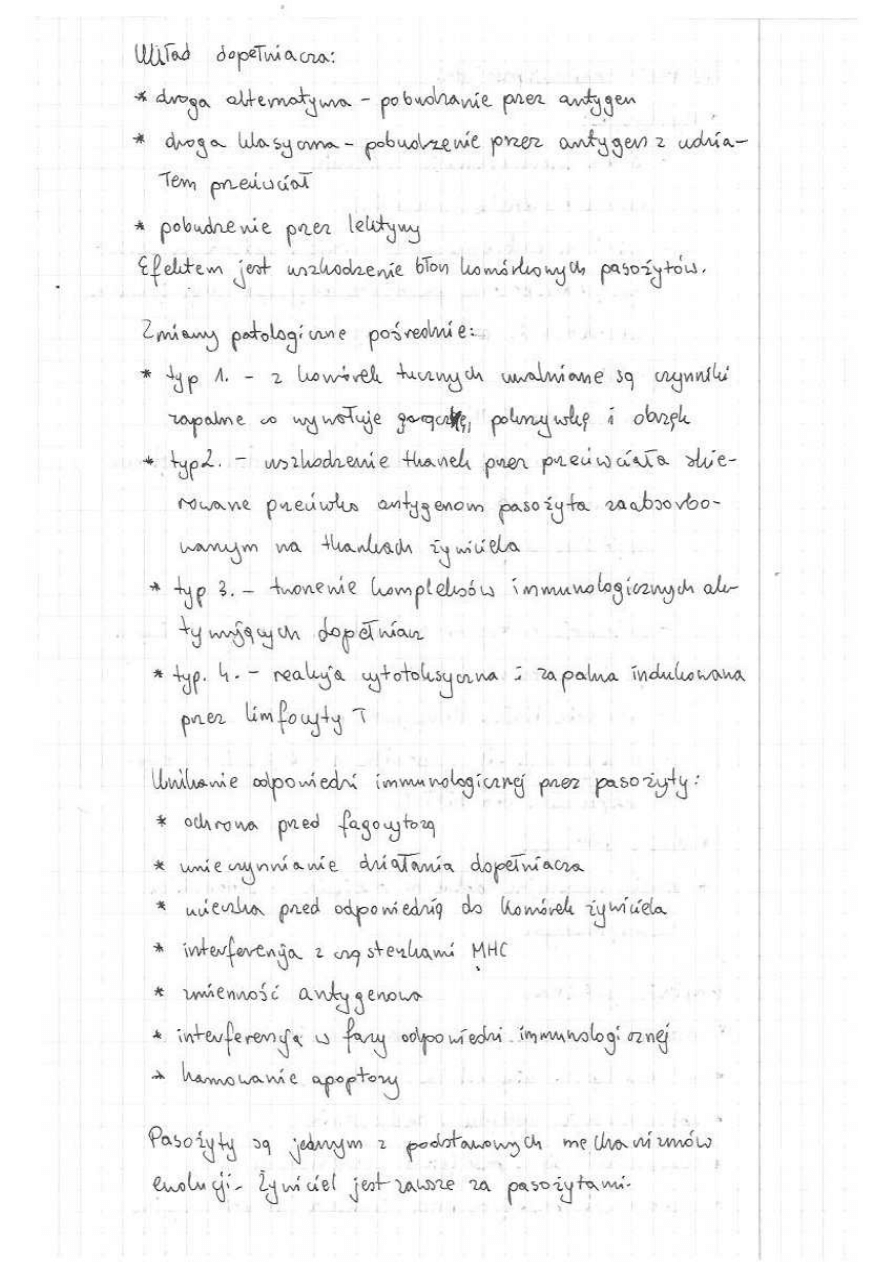 Układ dopełniacza:
* droga alternatywna - pobudzanie przez antygen
* droga klasyczna - pobudzenie przez antygen z udzia-
łem przeciwciał
* pobudzenie przez lektyny
Efektem jest uszkodzenie błon komórkowych pasożytów.
Zmiany patologiczne pośrednie:
* typ 1. - z komórek tucznych uwalniane są czynniki
zapalne co wywołuje gorączkę, pokrzywkę i obrzęk
* typ2. - uszkodzenie tkanek przez przeciwciała skie-
rowane przeciwko antygenom pasożyta zaabsorbo-
wanym na tkankach żywiciela
* typ 3. - tworzenie kompleksów immunologicznych ak-
tywujących dopełniacz
* typ. 4. - reakcja cytotoksyczna i zapalna indukowana
przez limfocyty T
Unikanie odpowiedzi immunologicznej przez pasożyty:
* ochrona przed fagocytozą
* unieczynnianie działania dopełniacza
* ucieczka przed odpowiedzią do komórek żywiciela
* interferencja z cząsteczkami MHC
* zmienność antygenowa
* interferencja w fazy odpowiedzi immunologicznej
* hamowanie apoptozy
Pasożyty są jednym z podstawowych mechanizmów
ewolucji. Żywiciel jest zawsze za pasożytami.